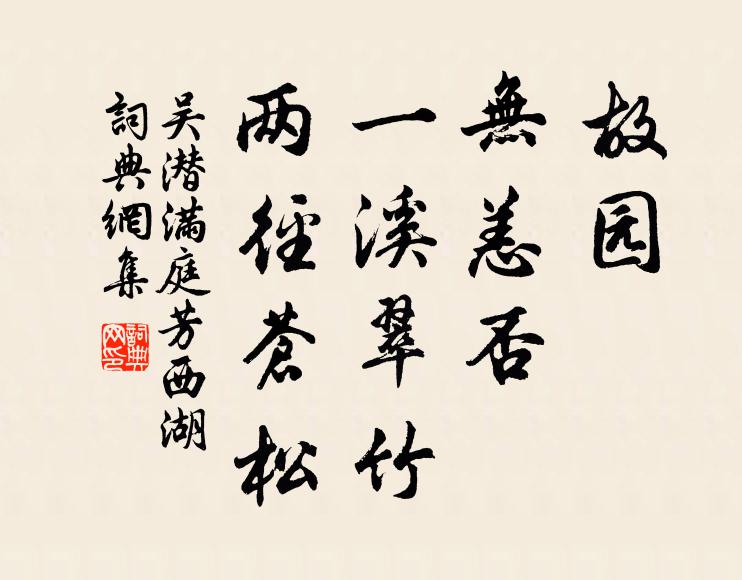 故园
無恙否
一溪翠竹
两徑蒼松
吴潜满庭芳西湖
詞典網集
詞典
网印